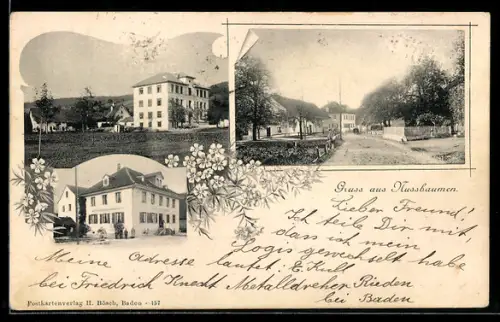 Gruss aus Nussbaumen.
Lieber Freund!
Ich teile Dir mit,
dass ich mein
Logis gewechselt habe
Meine Adresse lautet: E. Kull
bei Friedrich Knecht Metalldreher Rieden
bei Baden
Postkartenverlag H. Bösch, Baden - 157